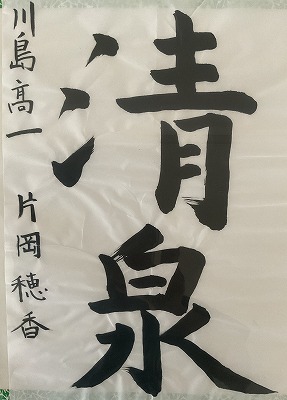 清泉
川島高一 片岡穂香